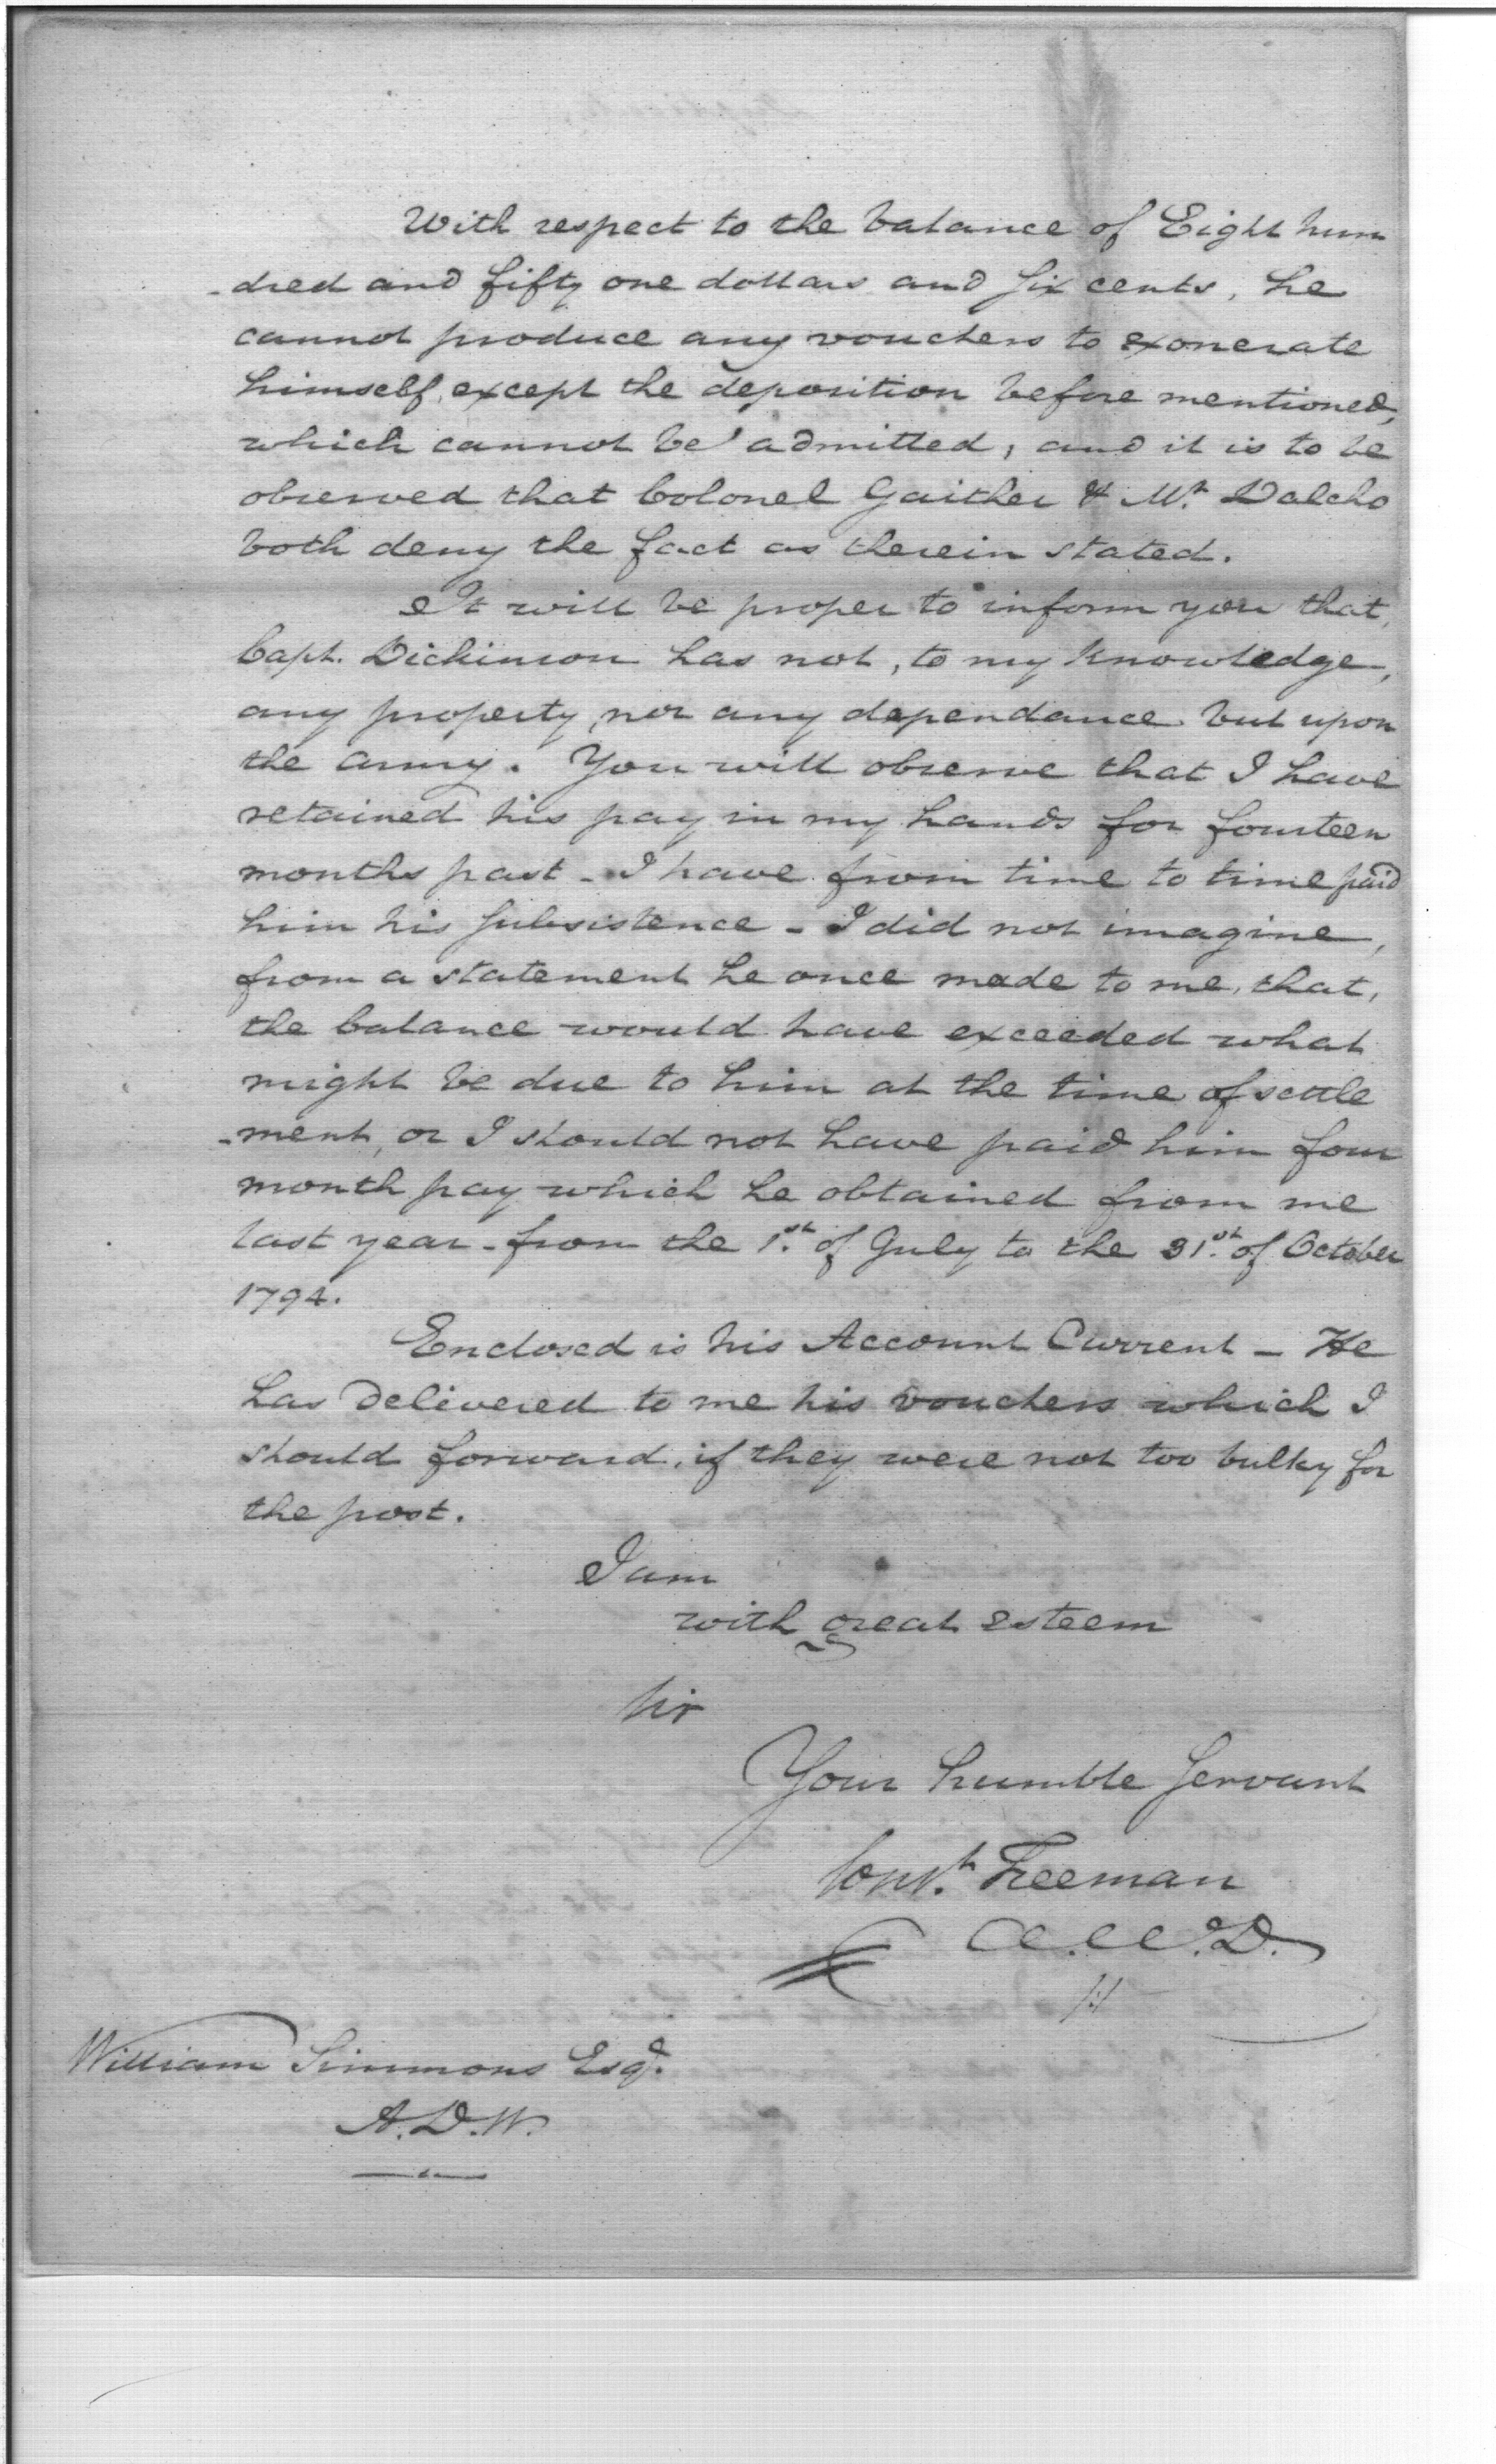 With respect to the balance of Eight hun
-dred and fifty one dollars and six cents, he
cannot produce any vouchers to exonerate
himself, except the deposition before mentioned,
which cannot be admitted, and it is to be
observed that Colonel Gaither & Mr. Dalcho
both deny the fact as therein stated.
It will be proper to inform you that,
Capt. Dickinson has not, to my knowledge,
any property, nor any dependance but upon
the army. You will observe that I have
retained his pay in my hands for fourteen
months past - I have from time to time paid
him his subsistence - I did not imagine,
from a statement he once made to me, that,
the balance would have exceeded what
might be due to him at the time of settle
-ment, or I should not have paid him four
month pay which he obtained from me
last year - from the 1st. of July to the 31st. of October
1794.
Enclosed is his Account Current - He
has delivered to me his vouchers which I
should forward, if they were not too bulky for
the post.
I am
with great esteem
Sir
Your humble servant
Const. Freeman
A.W.D.
William Simmons Esq.
A.D.W.